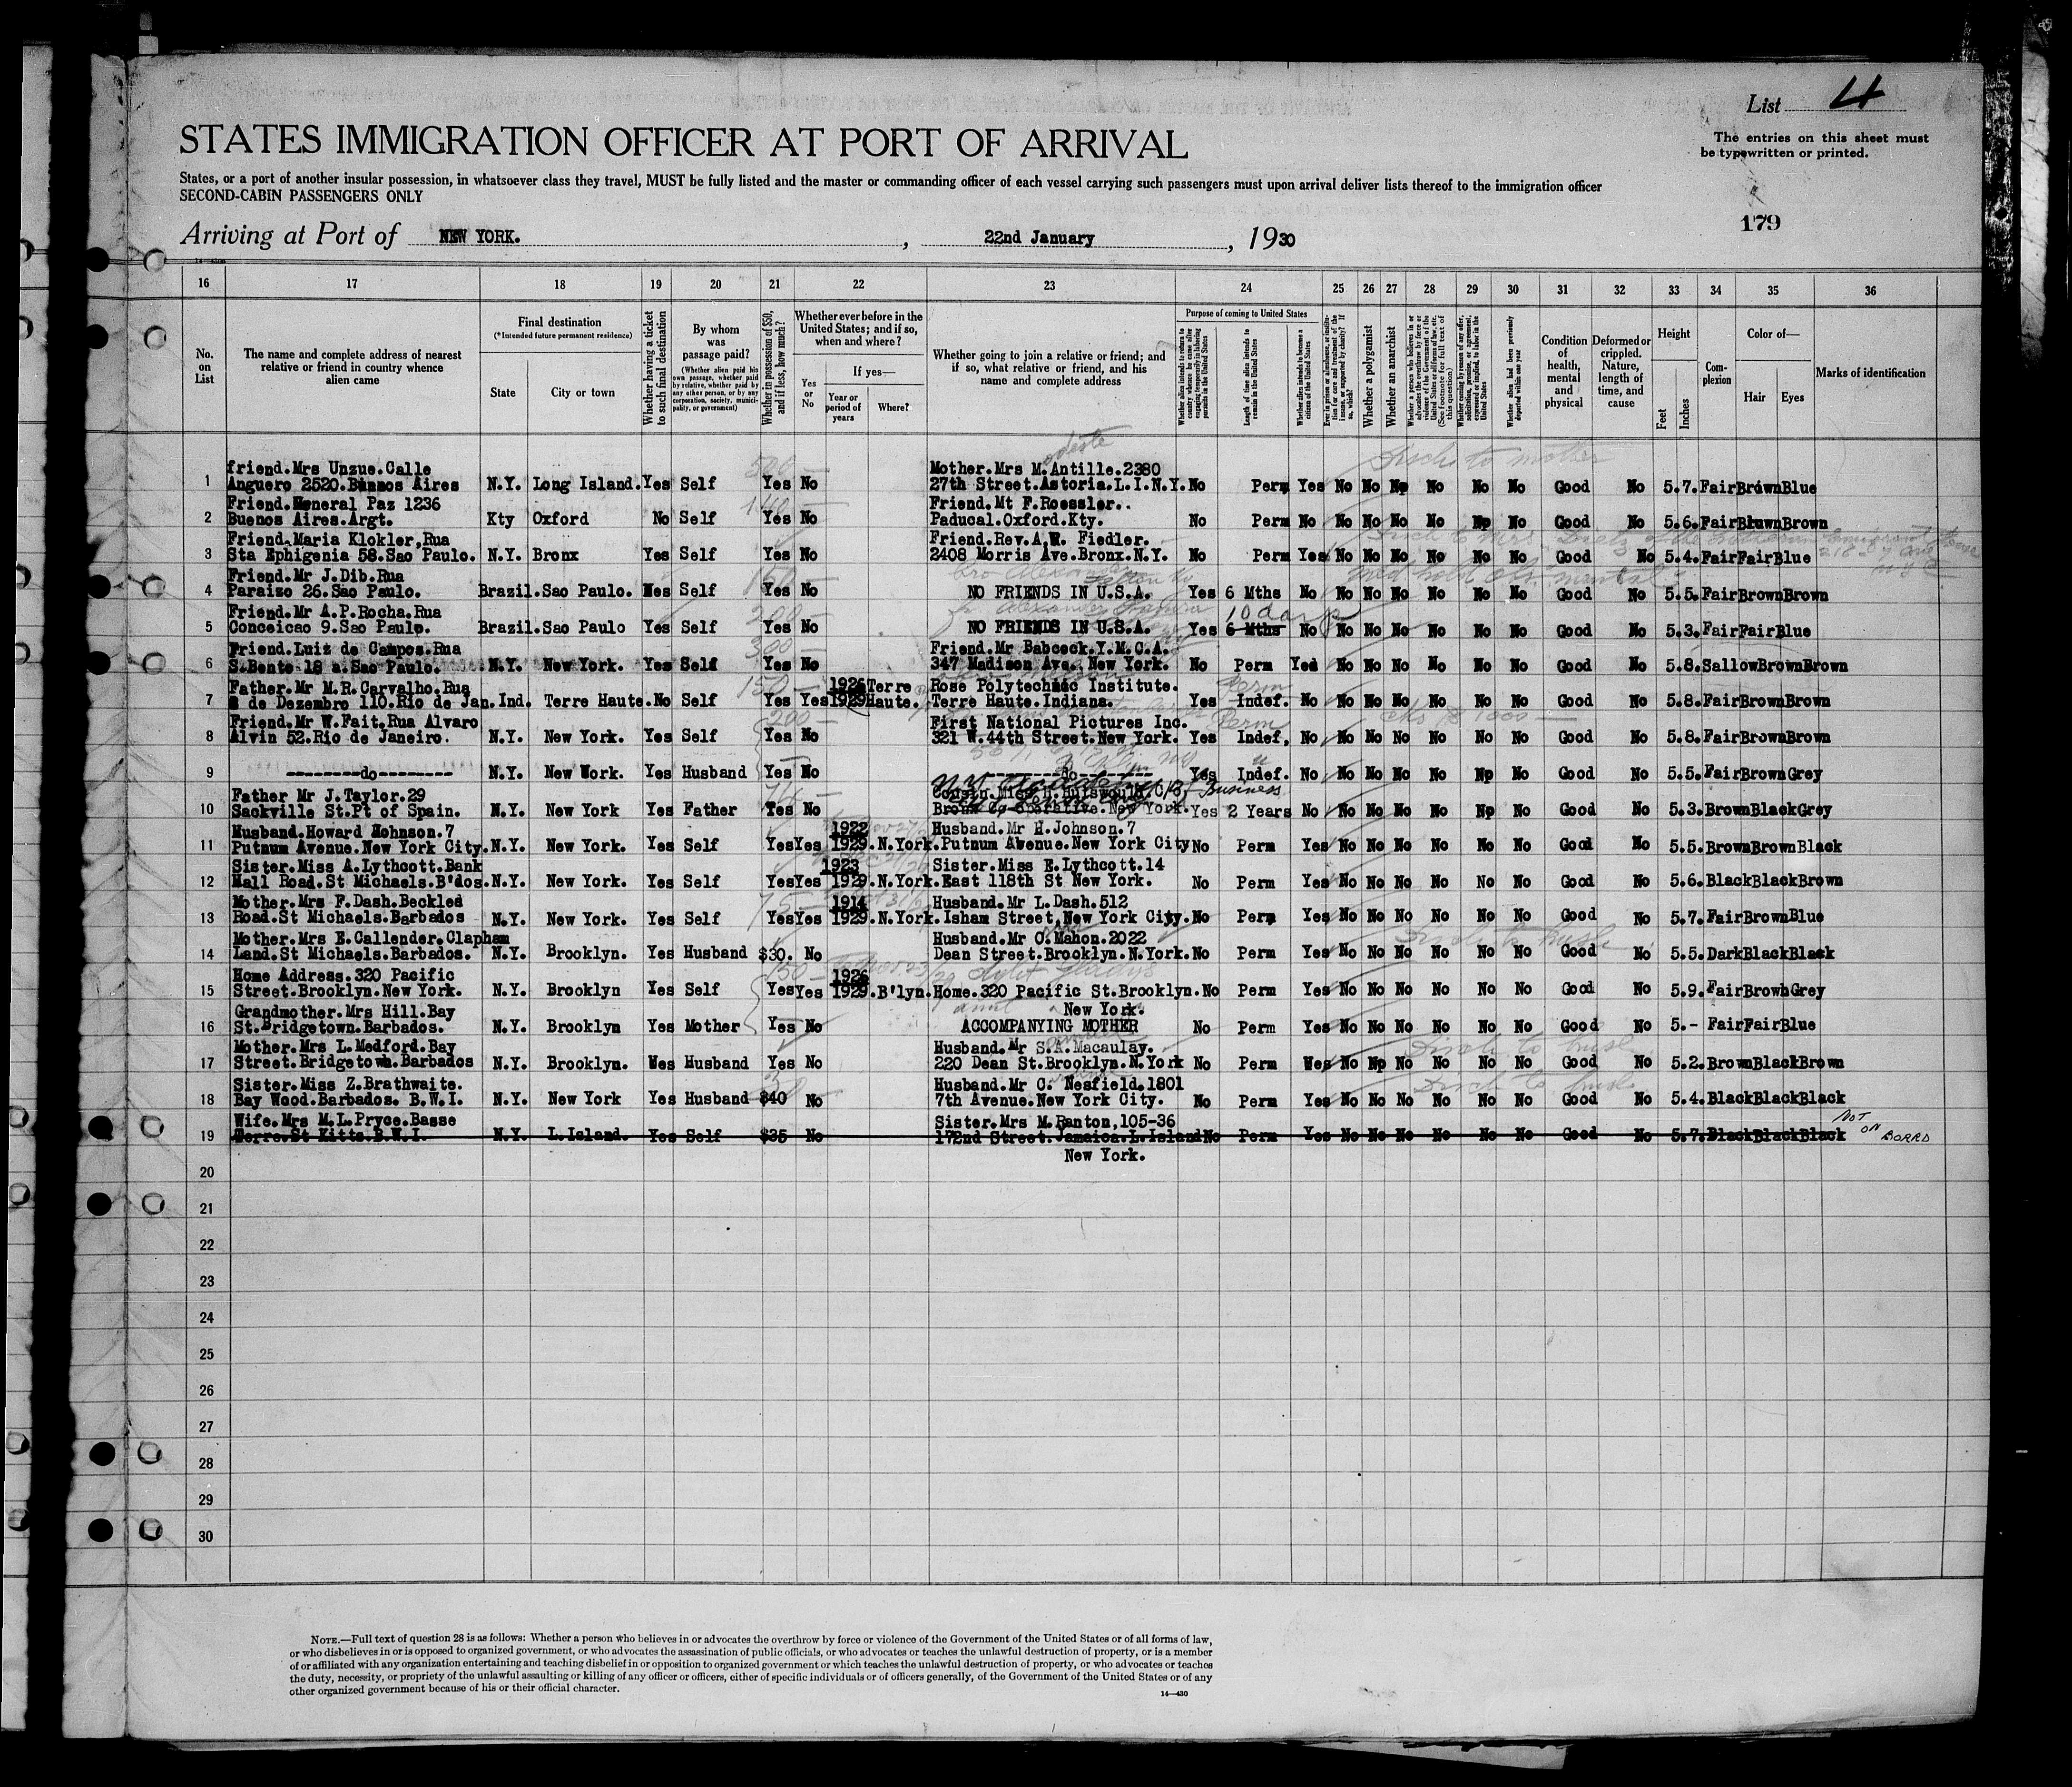 List 4
STATES IMMIGRATION OFFICER AT PORT OF ARRIVAL
The entries on this sheet must
be typewritten or printed.
States, or a port of another insular possession, in whatsoever class they travel, MUST be fully listed and the master or commanding officer of each vessel carrying such passengers must upon arrival deliver lists thereof to the immigration officer
SECOND-CABIN PASSENGERS ONLY
179
Arriving at Port of NEW YORK. , 22nd January , 1930
16 17 18 19 20 21 22 23 24 25 26 27 28 29 30 31 32 33 34 35 36
No. on List
The name and complete address of nearest relative or friend in country whence alien came
Final destination (*Intended future permanent residence)
State
City or town
Whether having a ticket to such final destination
By whom was passage paid?
(Whether alien paid his own passage, whether paid by relative, whether paid by any other person, or by any corporation, society, municipality, or government)
Whether in possession of $50, and if less, how much?
Whether ever before in the United States; and if so, when and where?
Yes or No
If yes—
Year or period of years
Where?
Whether going to join a relative or friend; and if so, what relative or friend, and his name and complete address
Purpose of coming to United States
Length of time alien intends to remain in the United States
Whether alien intends to become a citizen of the United States
Whether a polygamist
Whether an anarchist
Whether alien had been previously deported within one year
Condition of health, mental and physical
Deformed or crippled. Nature, length of time, and cause
Height
Feet
Inches
Complexion
Color of—
Hair
Eyes
Marks of identification
friend.Mrs Unzue.Calle Mother.Mrs M.Antille.2380
1 Anguero 2520.Buenos Aires N.Y. Long Island. Yes Self Yes No 27th Street.Astoria.L.I.N.Y. No Perm Yes No No No No No No Good No 5.7. Fair Brown Blue
Friend.General Paz 1236 Friend. Mt F.Roessler..
2 Buenos Aires.Argt. Kty Oxford No Self Yes No Paducal.Oxford.Kty. No Perm No No No No No No No Good No 5.6. Fair Brown Brown
Friend.Maria Klokler,Rua Friend.Rev.A.W. Fiedler.
3 Sta Ephigenia 58.Sao Paulo. N.Y. Bronx Yes Self Yes No 2408 Morris Ave.Bronx.N.Y. No Perm Yes No No No No No No Good No 5.4. Fair Fair Blue
Friend.Mr J.Dib.Rua
4 Paraizo 26.Sao Paulo. Brazil. Sao Paulo. Yes Self Yes No NO FRIENDS IN U.S.A. Yes 6 Mths No No No No No No No Good No 5.5. Fair Brown Brown
Friend.Mr A.P.Rocha.Rua 10 days
5 Conceicao 9.Sao Paulo. Brazil. Sao Paulo Yes Self Yes No NO FRIENDS IN U.S.A. Yes 6 Mths No No No No No No No Good No 5.3. Fair Fair Blue
Friend.Luiz de Campos.Rua Friend.Mr Babcock.Y.M.C.A.
6 S.Bento 18 a.Sao Paulo. N.Y. New York. Yes Self Yes No 347 Madison Ave. New York. No Perm Yes No No No No No No Good No 5.8. Sallow Brown Brown
Father.Mr M.R.Carvalho.Rua 1926 Terre Rose Polytechnic Institute. Perm
7 8 de Dezembro 110.Rio de Jan. Ind. Terre Haute. No Self Yes Yes 1929 Haute. Terre Haute.Indiana. Yes Indef. No No No No No No No Good No 5.8. Fair Brown Brown
Friend.Mr W.Fait.Rua Alvaro First National Pictures Inc. Perm
8 Alvin 52.Rio de Janeiro. N.Y. New York. Yes Self Yes No 321 W.44th Street.New York. Yes Indef, No No No No No No No Good No 5.8. Fair Brown Brown
9 --------do-------- N.Y. New York. Yes Husband Yes No --------do-------- Yes Indef. No No No No No No No Good No 5.5. Fair Brown Grey
Father Mr J.Taylor.29 Business
10 Sackville St.Pt of Spain. N.Y. New York Yes Father Yes No New York. Yes 2 Years No No No No No No No Good No 5.3. Brown Black Grey
Husband.Howard Johnson.7 1922 Husband.Mr H.Johnson.7
11 Putnum Avenue.New York City. N.Y. New York. Yes Self Yes Yes 1929. N.York. Putnum Avenue.New York City No Perm Yes No No No No No No Good No 5.5. Brown Brown Black
Sister.Miss A.Lythcott.Bank 1923 Sister.Miss E.Lythcott.14
12 Hall Road.St Michaels.B'dos. N.Y. New York. Yes Self Yes Yes 1929. N.York. East 118th St New York. No Perm Yes No No No No No No Good No 5.6. Black Black Brown
Mother.Mrs F.Dash.Beckles 1914 Husband.Mr L.Dash.512
13 Road.St Michaels.Barbados N.Y. New York. Yes Self Yes Yes 1929. N.York. Isham Street,New York City. No Perm Yes No No No No No No Good No 5.7. Fair Brown Blue
Mother.Mrs E.Callender.Clapham Husband.Mr C.Mahon.2022
14 Land.St Michaels.Barbados. N.Y. Brooklyn. Yes Husband $30. No Dean Street.Brooklyn.N.York. No Perm Yes No No No No No No Good No 5.5. Dark Black Black
Home Address.320 Pacific 1926
15 Street.Brooklyn.New York. N.Y. Brooklyn Yes Self Yes Yes 1929. B'lyn. Home.320 Pacific St.Brooklyn. No Perm Yes No No No No No No Good No 5.9. Fair Brown Grey
Grandmother.Mrs Hill.Bay New York.
16 St.Bridgetown.Barbados. N.Y. Brooklyn Yes Mother Yes No ACCOMPANYING MOTHER No Perm Yes No No No No No No Good No 5.- Fair Fair Blue
Mother.Mrs L.Medford.Bay Husband.Mr S.A.Macaulay.
17 Street.Bridgetown.Barbados N.Y. Brooklyn. Yes Husband Yes No 220 Dean St.Brooklyn.N.York No Perm Yes No No No No No No Good No 5.2. Brown Black Brown
Sister.Miss Z.Brathwaite. Husband.Mr C. Nesfield.1801
18 Bay Wood.Barbados. B.W.I. N.Y. New York Yes Husband $40 No 7th Avenue.New York City. No Perm Yes No No No No No No Good No 5.4. Black Black Black
Wife.Mrs M.L.Pryce.Basse Sister.Mrs M.Ranton,105-36 NOT ON BORRD
19 Terre.St Kitts.B.W.I. N.Y. L.Island. Yes Self $35 No 172nd Street.Jamaica.L.Island No Perm Yes No No No No No No Good No 5.7. Black Black Black
New York.
20
21
22
23
24
25
26
27
28
29
30
NOTE.—Full text of question 28 is as follows: Whether a person who believes in or advocates the overthrow by force or violence of the Government of the United States or of all forms of law,
or who disbelieves in or is opposed to organized government, or who advocates the assassination of public officials, or who advocates or teaches the unlawful destruction of property, or is a member
of or affiliated with any organization entertaining and teaching disbelief in or opposition to organized government or which teaches the unlawful destruction of property, or who advocates or teaches
the duty, necessity, or propriety of the unlawful assaulting or killing of any officer or officers, either of specific individuals or of officers generally, of the Government of the United States or of any
other organized government because of his or their official character.
14—430